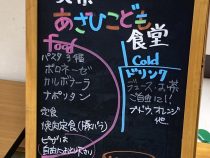 あさひこども
食堂
food
パスタ3種
ボロネーゼ
カルボナーラ
ナポリタン
定食
焼肉定食(豚バラ)
ピザは
自由にお とり下さい
Cold
ドリンク
ジュース・お茶
ご自由に!!
ブドウ、オレンジ
他